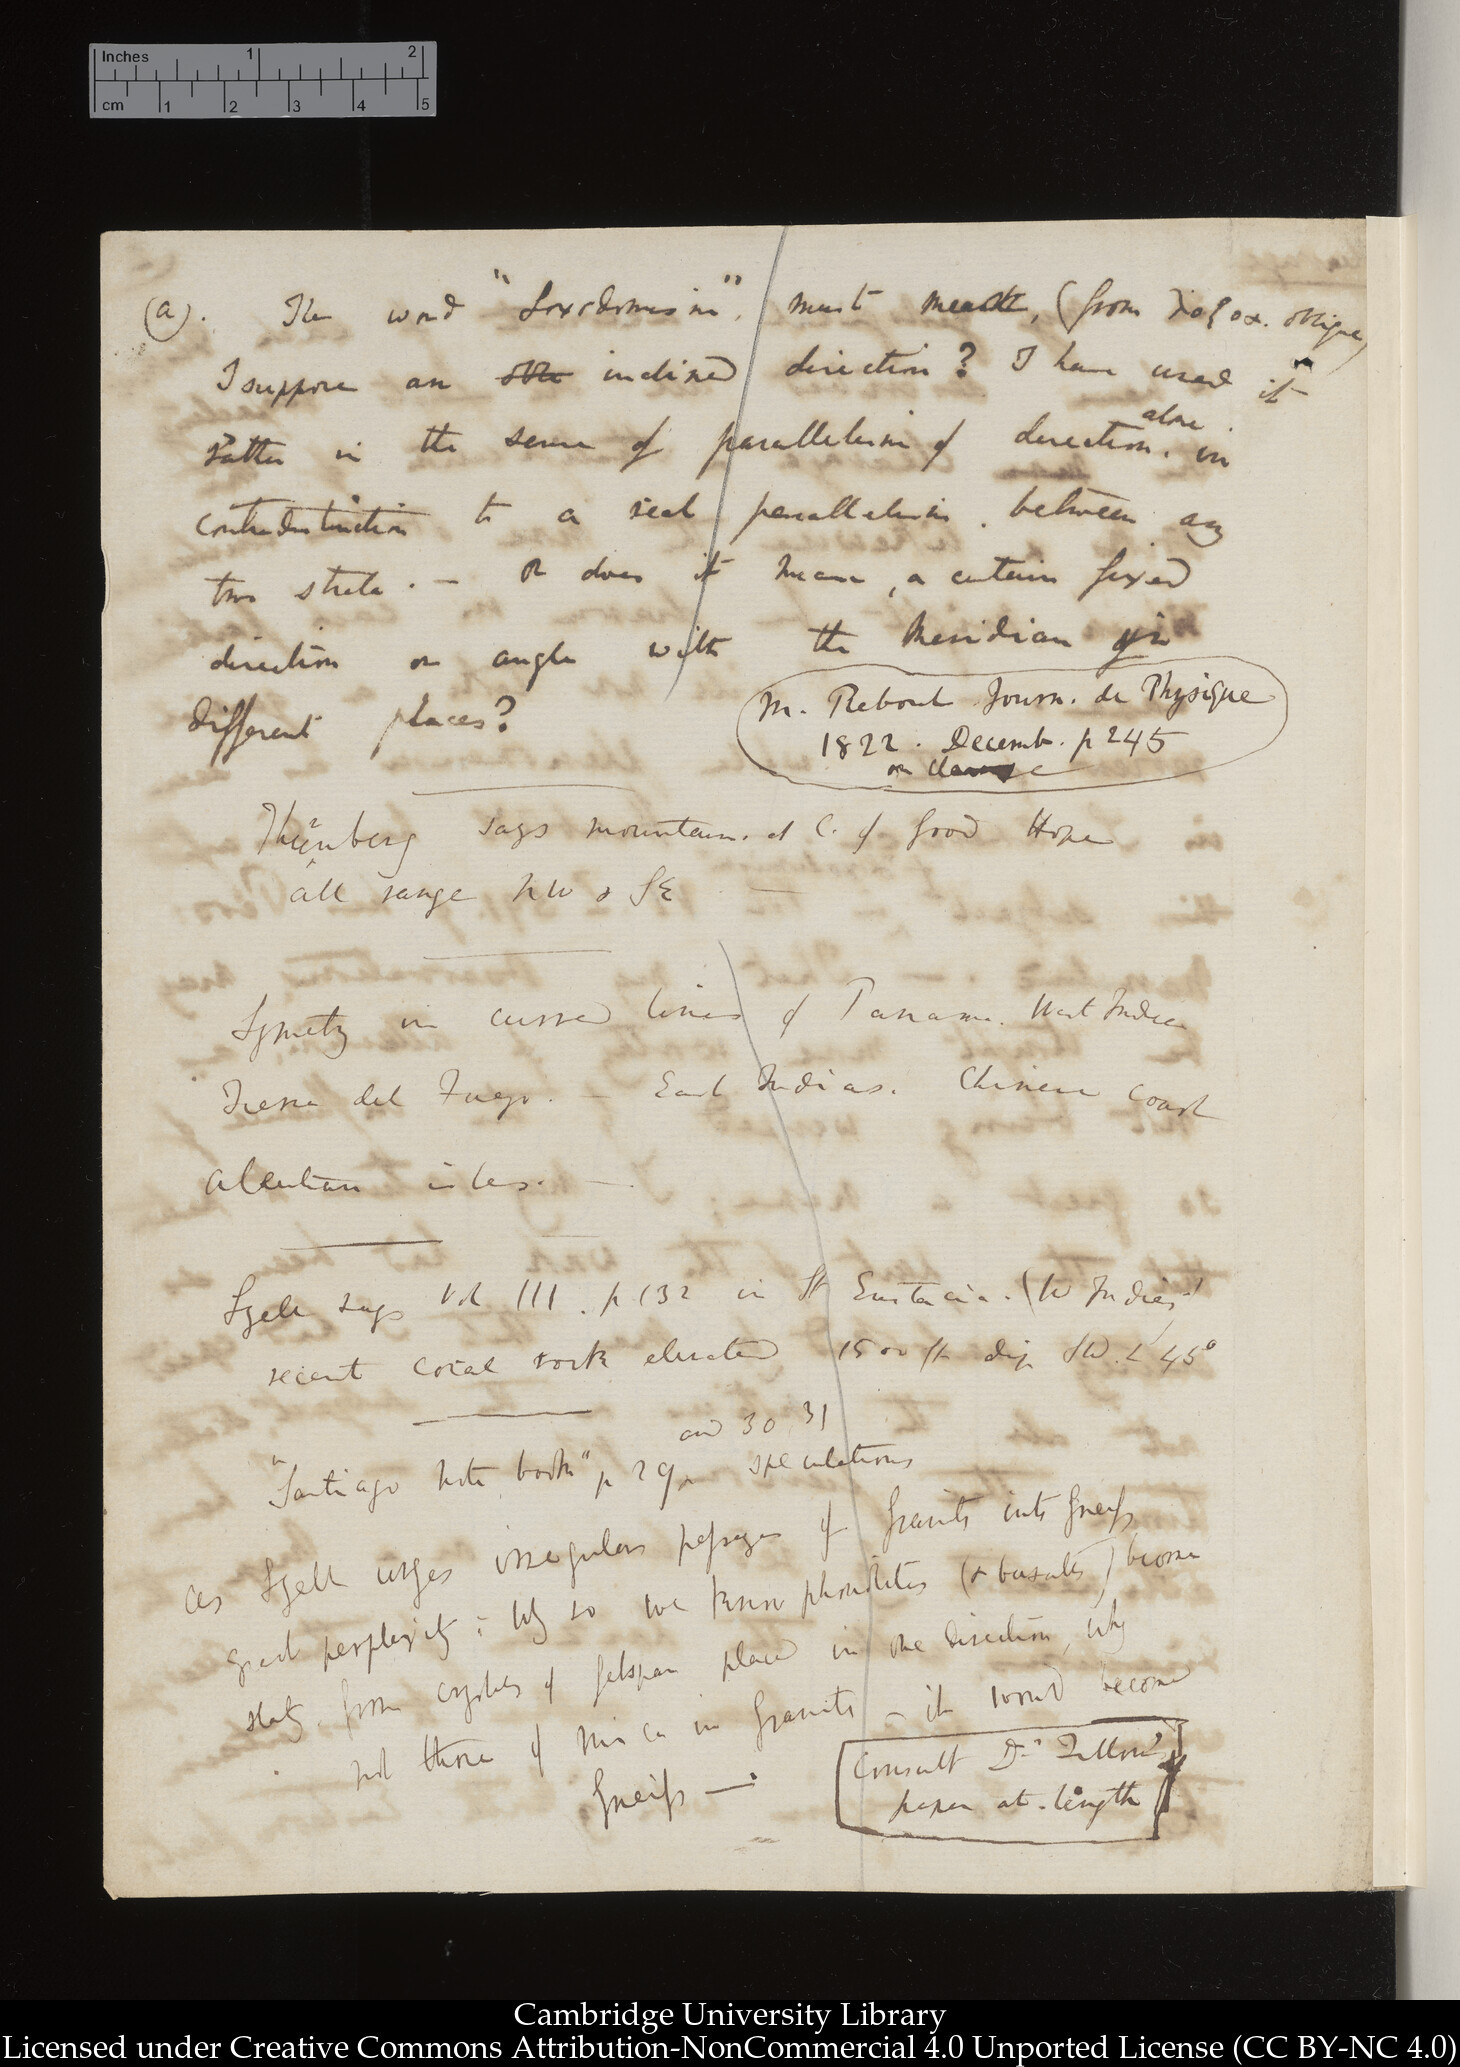 Inches 1 2
cm 1 2 3 4 5
(a). The word "Loxodromism", must mean, (from λοξος. oblique)
I suppose an obli inclined direction? I have used it
rather in the sense of parallelism of direction alone. in
contradistinction to a real parallelism. between any
two strata. — or does it mean, a certain fixed
direction or angle with the meridian in
different places?
M. Reboul Journ. de Physique
1822. Decemb. p 245
on
Thunberg says mountains at C. of Good Hope
all range NW & SE —
Symetry in curved lines of Panama. West Indies
Tierra del Fuego. — East Indias. Chinese Coast
Aleutian isles. —
Lyell says Vol III. p 132 in St Eustacia. (W Indies)
recent coral rock elevated 1500 ft dip SW. L 45°
and 30 31
"Santiago note book" p 29 speculations
as Lyell urges irregular passages of Granite into Gneiss
great perplexity: Why so we know phonolites (& basalts) become
slaty from crystals of felspar placed in one direction, why
not those of mica in Granite — it would become
Gneiss —
Consult Dr.
paper at length
Cambridge University Library
Licensed under Creative Commons Attribution-NonCommercial 4.0 Unported License (CC BY-NC 4.0)